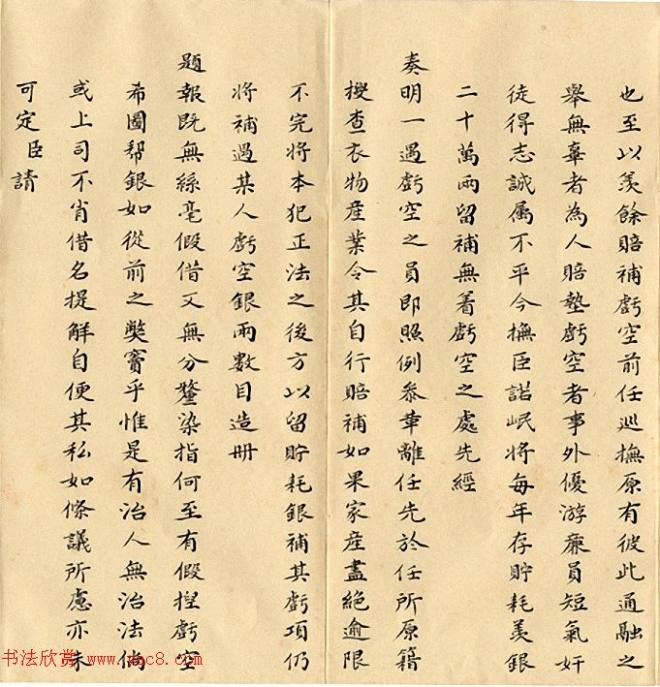 也至以羨餘賠補虧空前任巡撫原有彼此通融之
舉無辜者為人賠墊虧空者事外優游廉員短氣奸
徒得志誠属不平今撫臣諾岷將每年存貯耗羨銀
二十萬兩留補無着虧空之處先經
奏明一遇虧空之員即照例叅革離任先於任所原籍
搜查衣物産業令其自行賠補如果家産盡絕逾限
不完將本犯正法之後方以留貯耗銀補其虧項仍
將補過某人虧空銀兩數目造冊
題報既無絲毫假借又無分釐染指何至有假捏虧空
希圖帮銀如從前之獘竇乎惟是有治人無治法倘
或上司不肖借名提解自便其私如條議所慮亦未
可定臣請
书法欣赏 www.yac8.com